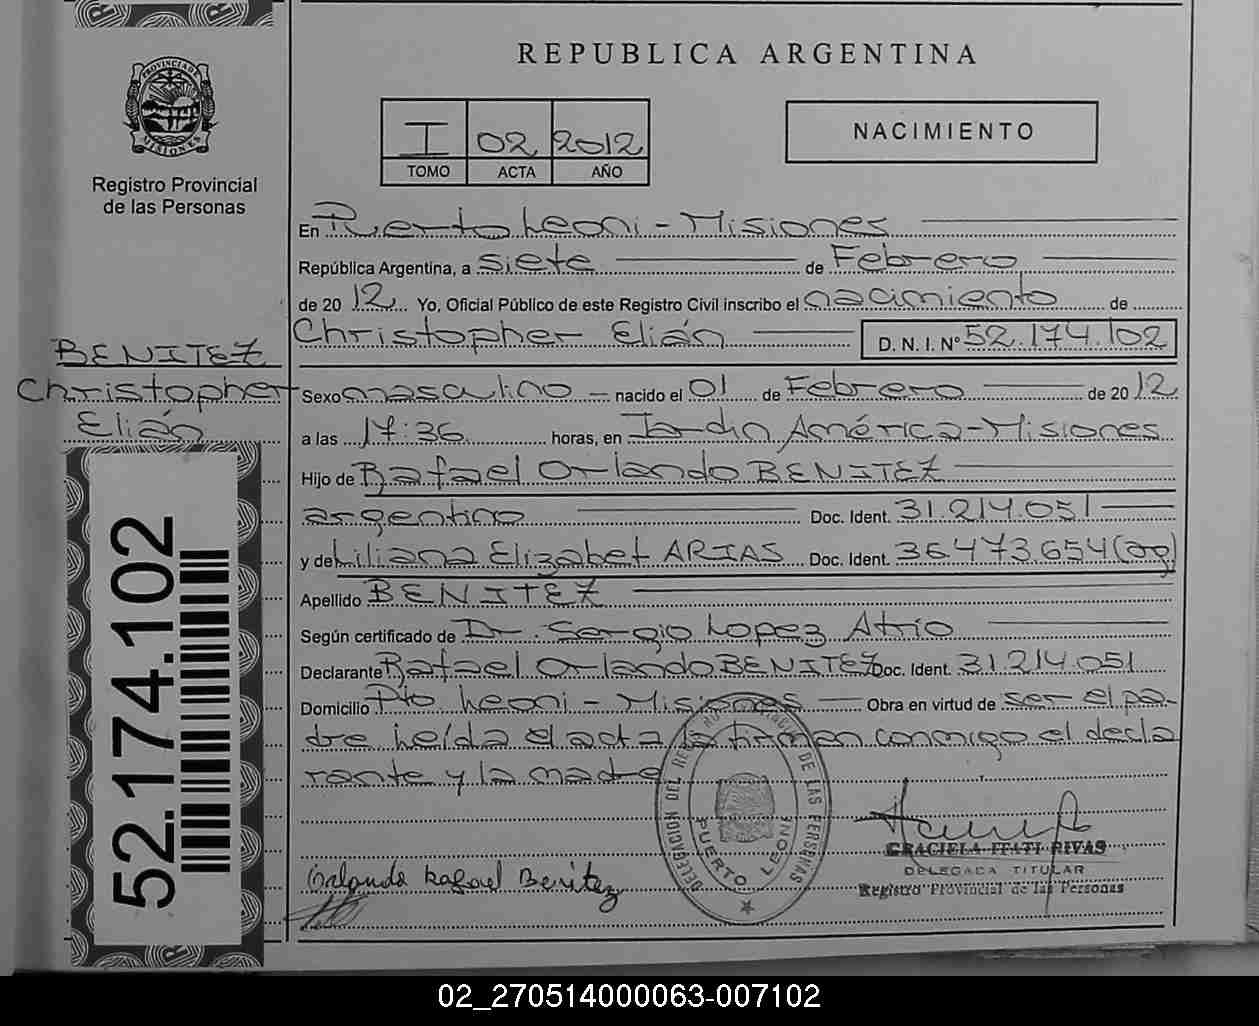 PROVINCIA DE
MISIONES
Registro Provincial
de las Personas
REPUBLICA ARGENTINA
I 02 2012
TOMO ACTA AÑO
NACIMIENTO
En Puerto Leoni - Misiones
República Argentina, a siete de Febrero
de 20 12. Yo, Oficial Público de este Registro Civil inscribo el nacimiento de
Christopher Elián D. N. I. Nº 52.174.102
BENITEZ
Christopher
Elián
Sexo masculino nacido el 01 de Febrero de 20 12.
a las 17:36 horas, en Jardin América - Misiones
Hijo de Rafael Orlando BENITEZ
argentino Doc. Ident. 31.214.051
y de Liliana Elizabet ARIAS Doc. Ident. 36473.654 (ag)
Apellido BENITEZ
Según certificado de Dr. Sergio Lopez Atrio
Declarante Rafael Orlando BENITEZ Doc. Ident. 31.214.051
Domicilio Pto Leoni - Misiones Obra en virtud de ser el pa-
dre Leída el acta la firman conmigo el decla
rante y la madre
52.174.102
DELEGACION DEL REGISTRO PROVINCIAL DE LAS PERSONAS
PUERTO LEONI
GRACIELA ITATI RIVAS
DELEGADA TITULAR
Registro Provincial de las Personas
Orlando Rafael Benitez
02_270514000063-007102